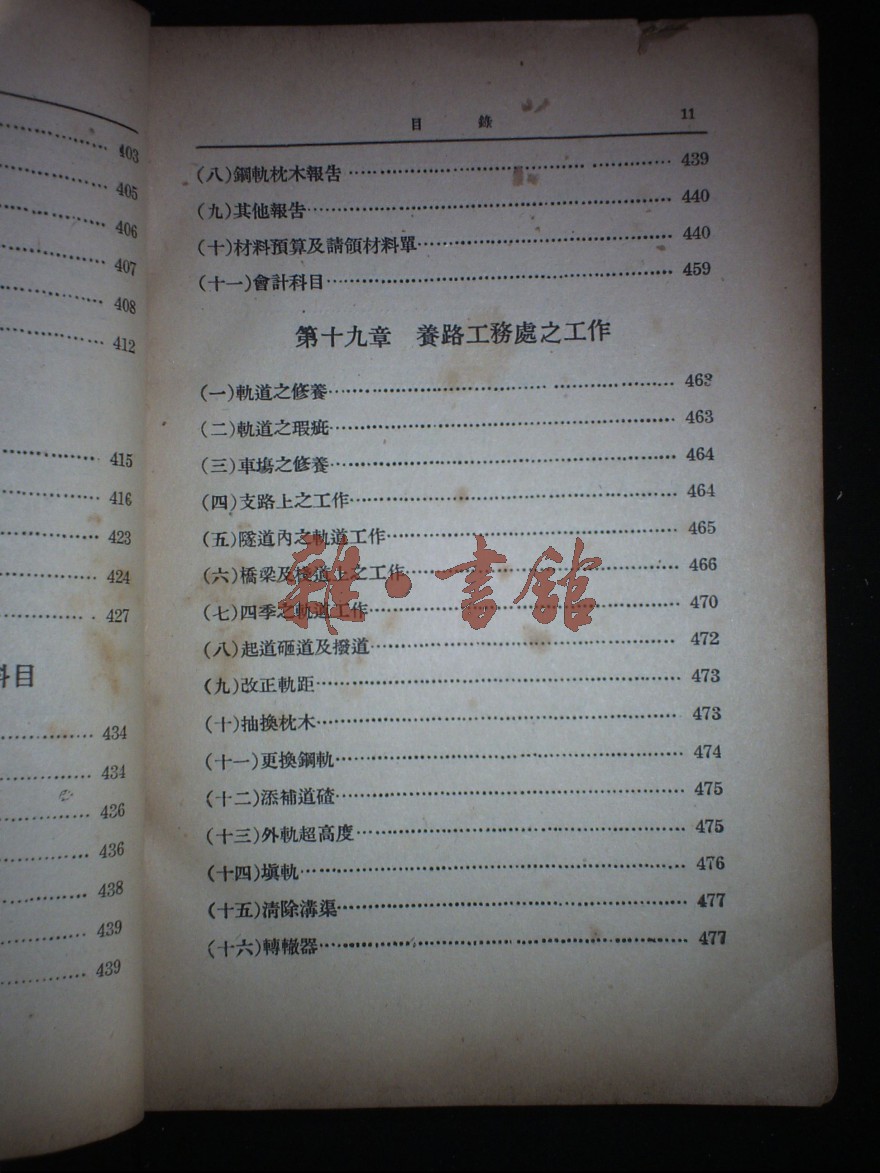 403
405
406
407
408
412
415
416
423
424
427
科目
434
434
436
436
438
439
439
目 錄 11
(八)鋼軌枕木報告 439
(九)其他報告 440
(十)材料預算及請領材料單 440
(十一)會計科目 459
第十九章 養路工務處之工作
(一)軌道之修養 463
(二)軌道之瑕疵 463
(三)車塲之修養 464
(四)支路上之工作 464
(五)隧道內之軌道工作 465
(六)橋梁及棧道上之工作 466
(七)四季之軌道工作 470
(八)起道砸道及撥道 472
(九)改正軌距 473
(十)抽換枕木 473
(十一)更換鋼軌 474
(十二)添補道碴 475
(十三)外軌超高度 475
(十四)塡軌 476
(十五)清除溝渠 477
(十六)轉轍器 477
雅·書館